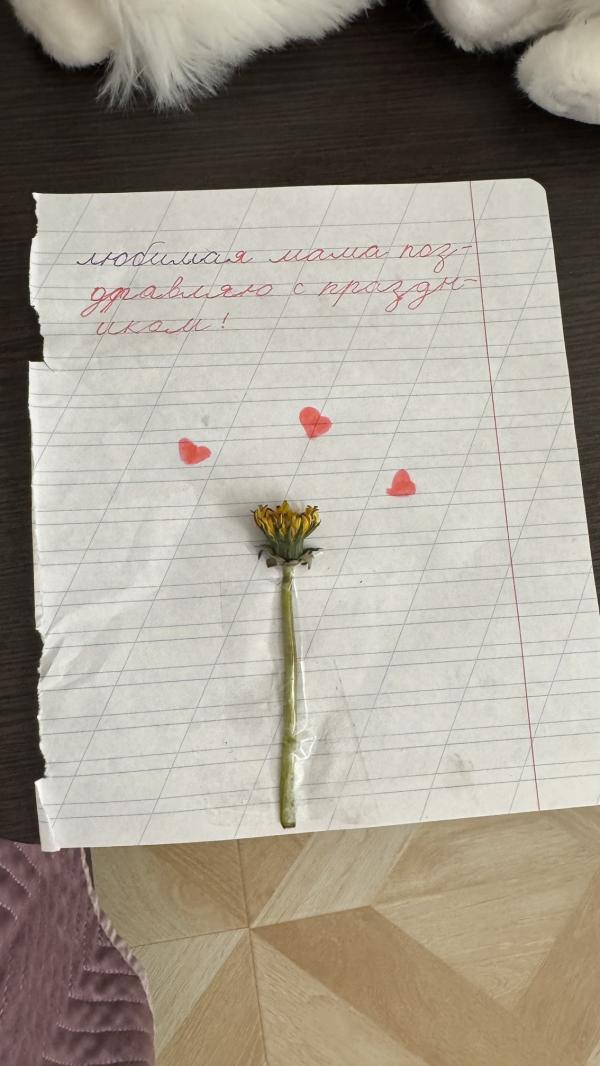 любимая мама поз-
дравляю с праздн-
иком!